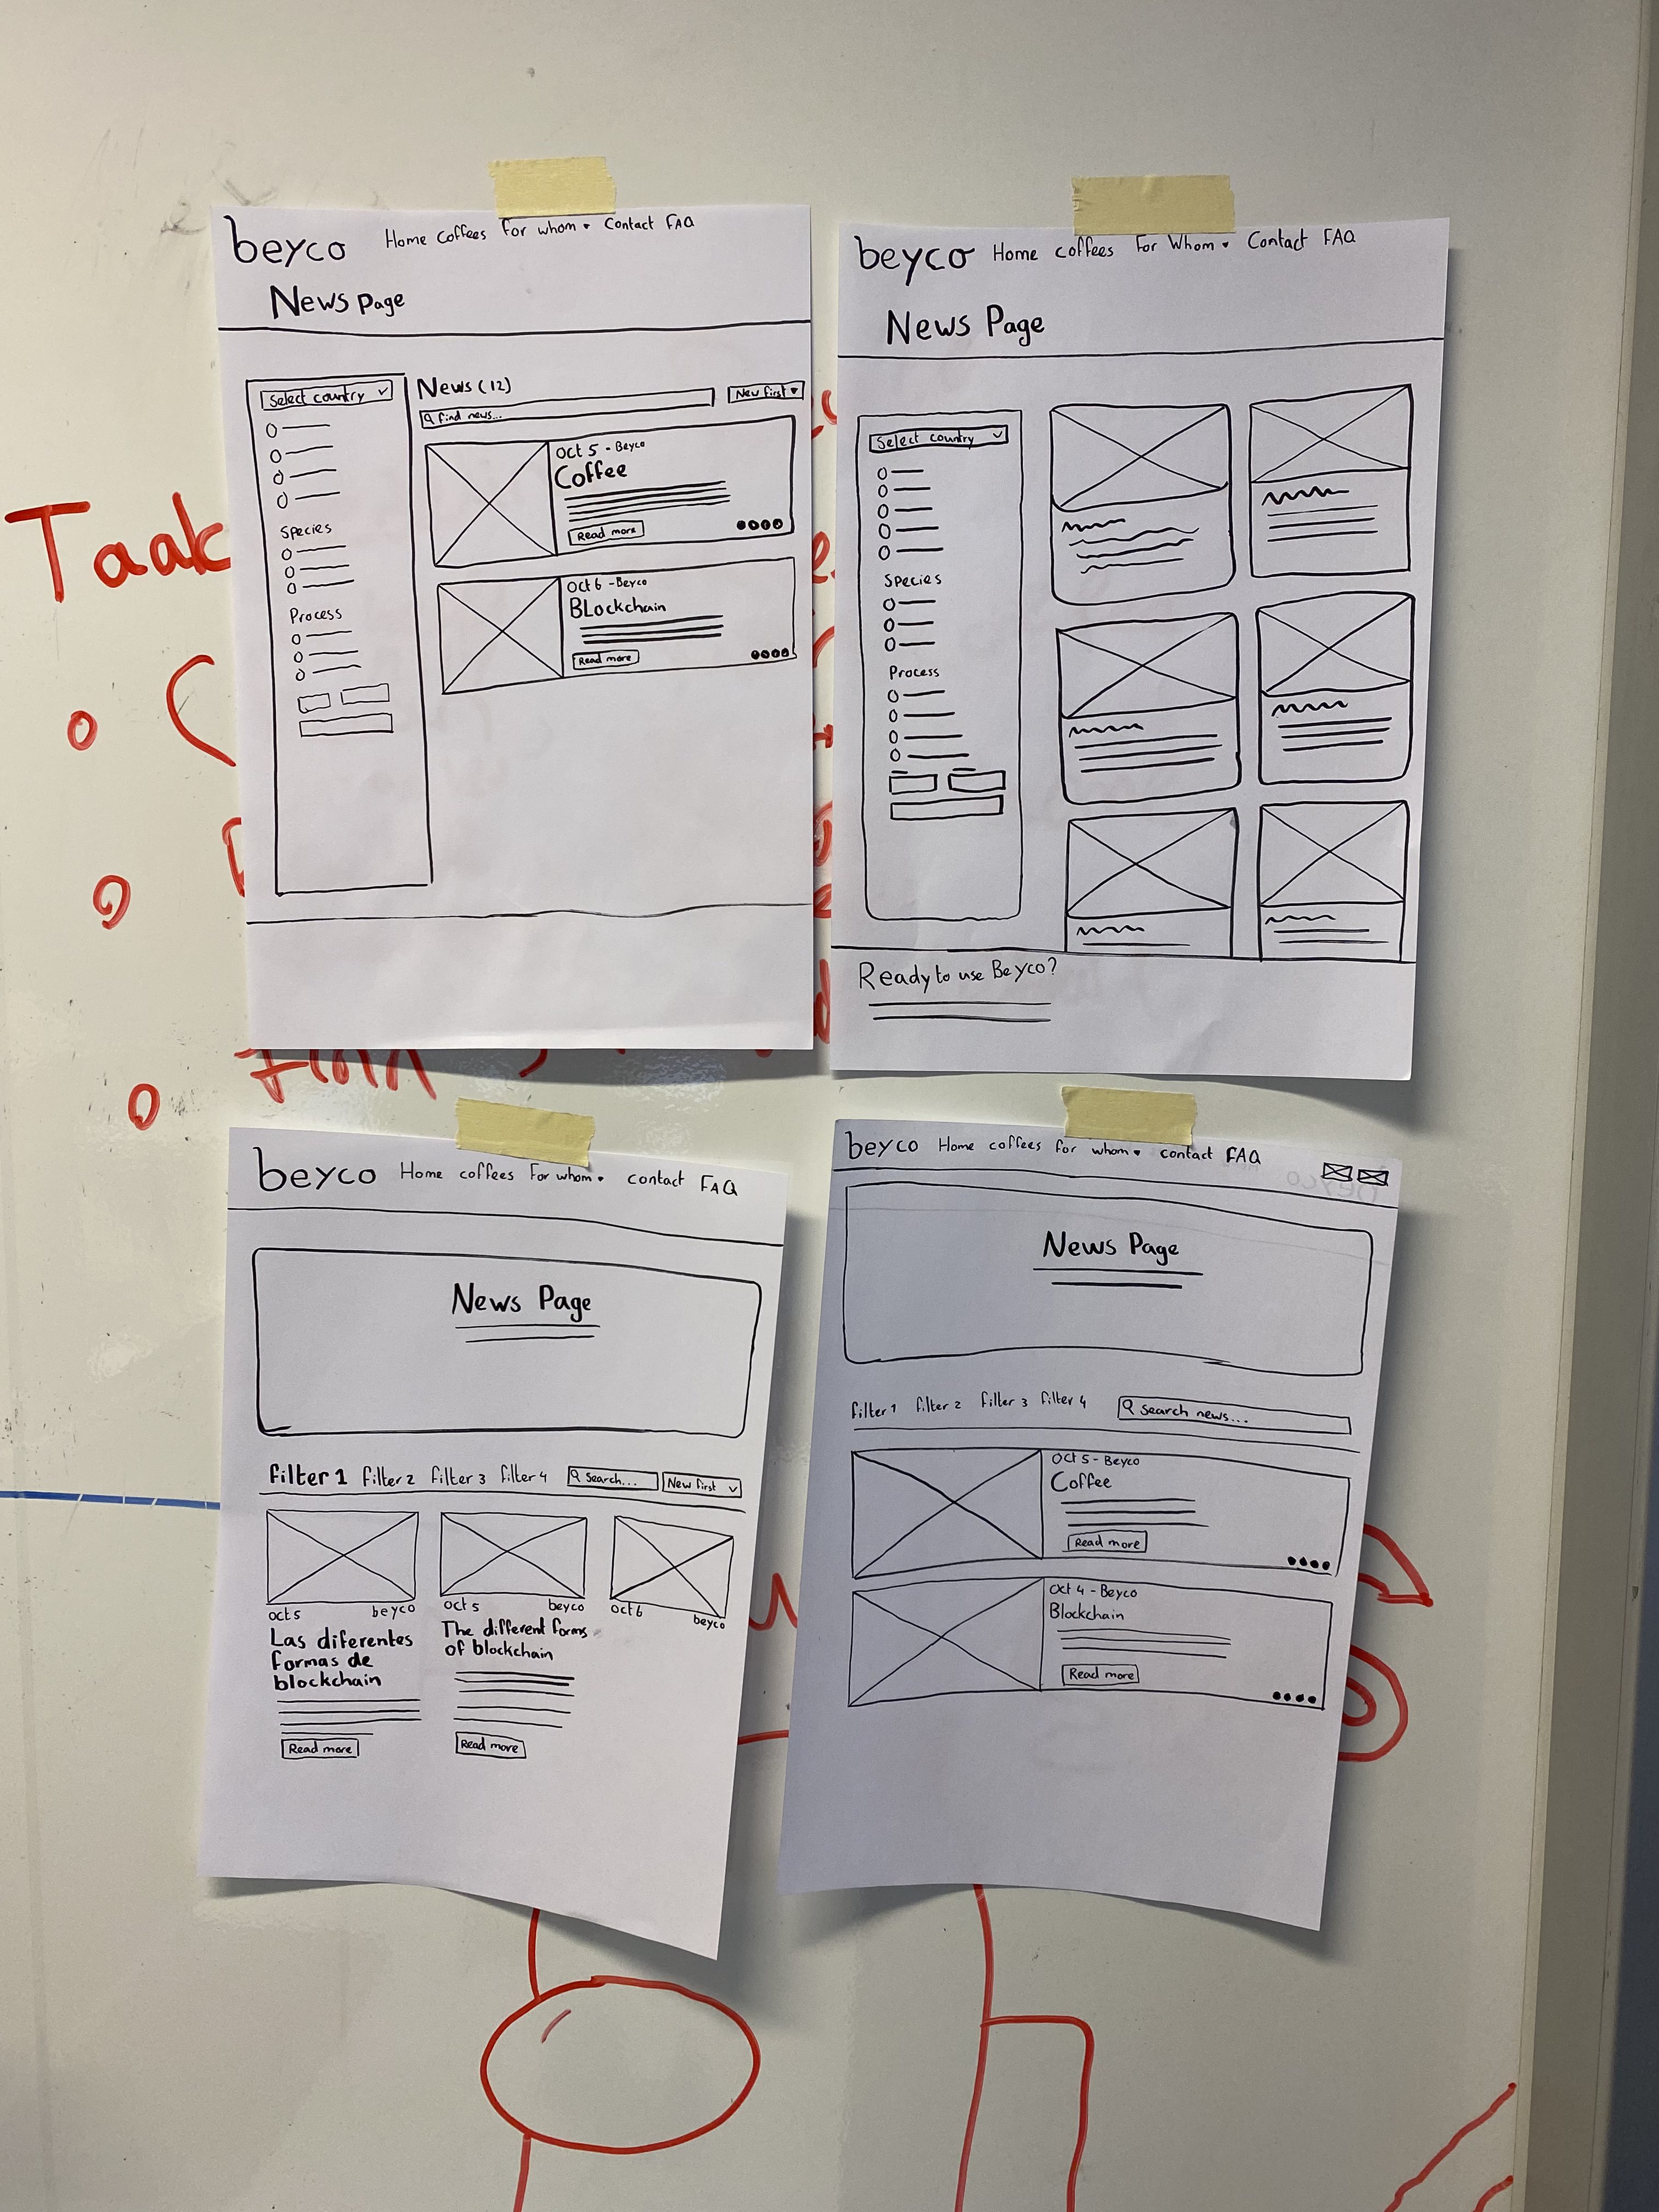 beyco Home Coffees For whom Contact FAQ
News Page
Select country
Species
Process
News (12)
find news...
New first
Oct 5 - Beyco
Coffee
Read more
Oct 6 - Beyco
BLockchain
Read more
beyco Home coffees For Whom Contact FAQ
News Page
Select country
Species
Process
Ready to use Beyco?
Taak
beyco Home coffees For whom contact FAQ
News Page
filter 1 filter 2 filter 3 filter 4 Search... New first
oct 5 beyco
Las diferentes
formas de
blockchain
Read more
oct 5 beyco
The different forms
of blockchain
Read more
oct 6 beyco
beyco Home coffees for whom contact FAQ
News Page
filter 1 filter 2 filter 3 filter 4 Search news...
Oct 5 - Beyco
Coffee
Read more
Oct 4 - Beyco
Blockchain
Read more